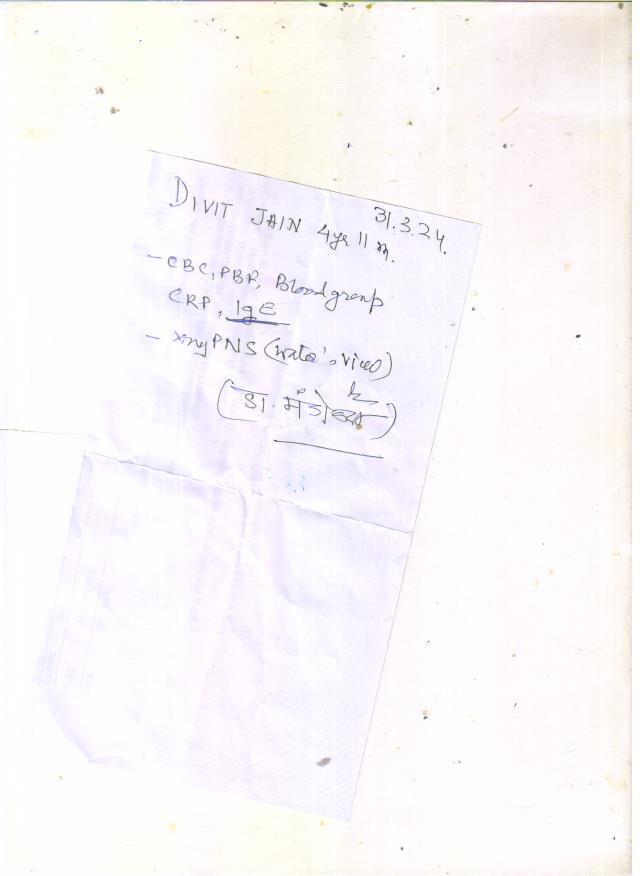 31.3.24.
DIVIT JAIN 4yr 11 m.
- CBC, PBF, Blood group
CRP, IgE
- Xray PNS (water's view)
(डा.